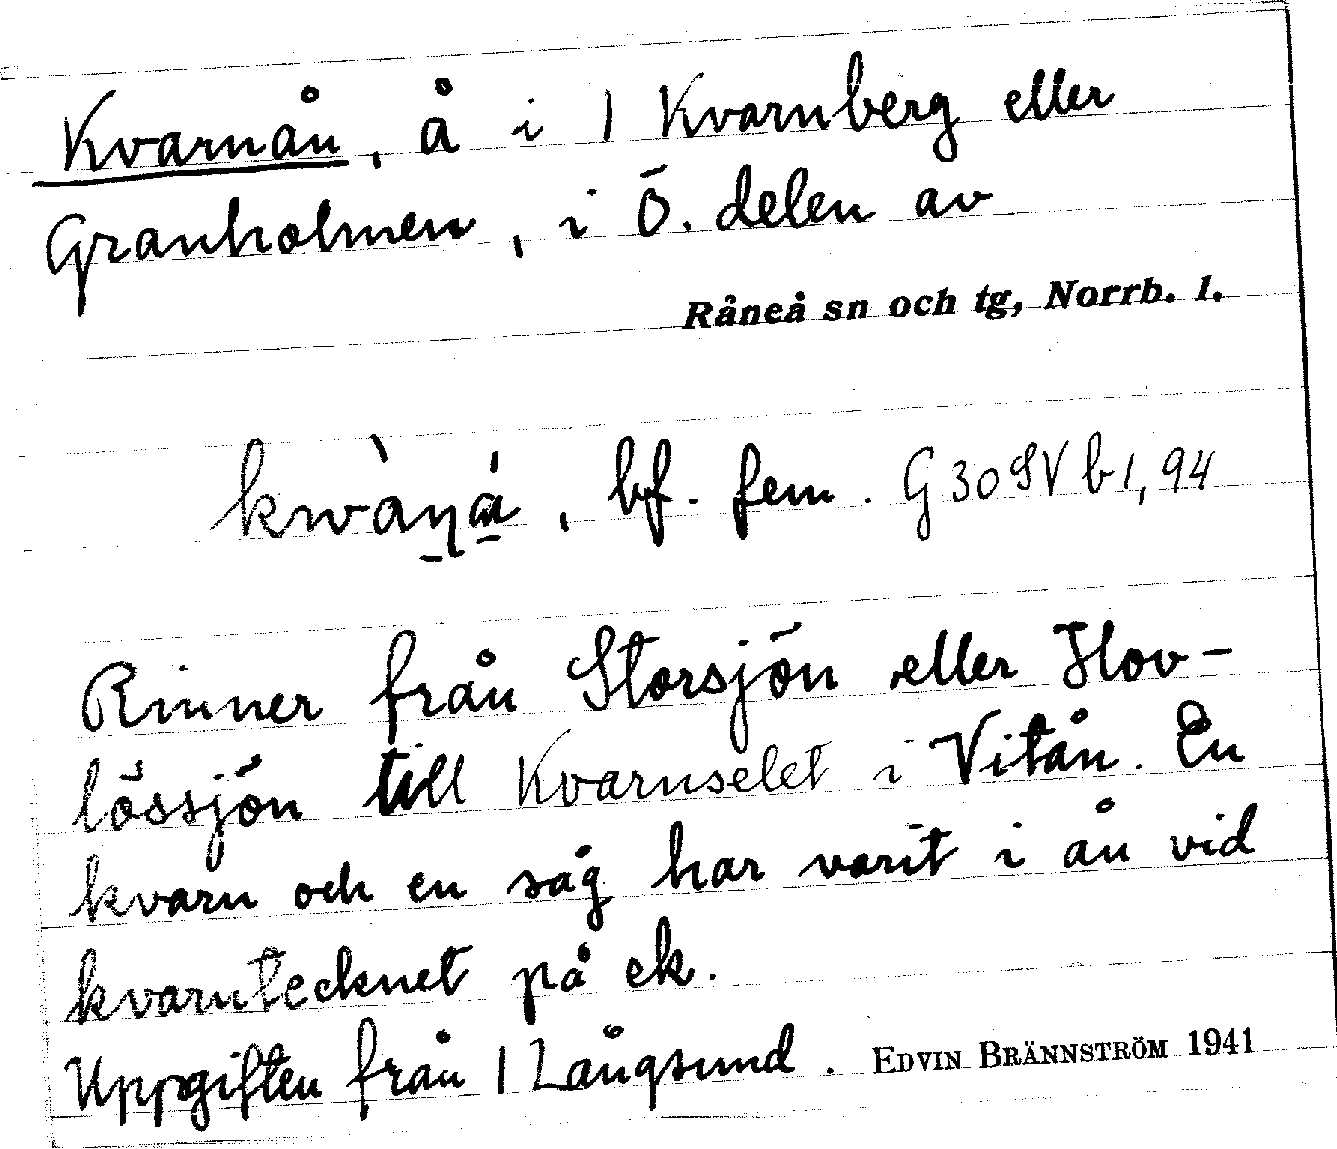 Kvarnån, å i 1 Kvarnberg eller
Granholmen, i Ö. delen av
Råneå sn och tg, Norrb. l.
bf. fem. G 30 SV b 1, 94
Rinner från Storsjön eller Hov-
lössjön till Kvarnselet i Vitån. En
kvarn och en såg har varit i ån vid
kvarntecknet på ek.
Uppgiften från 1 Långsund. EDVIN BRÄNNSTRÖM 1941